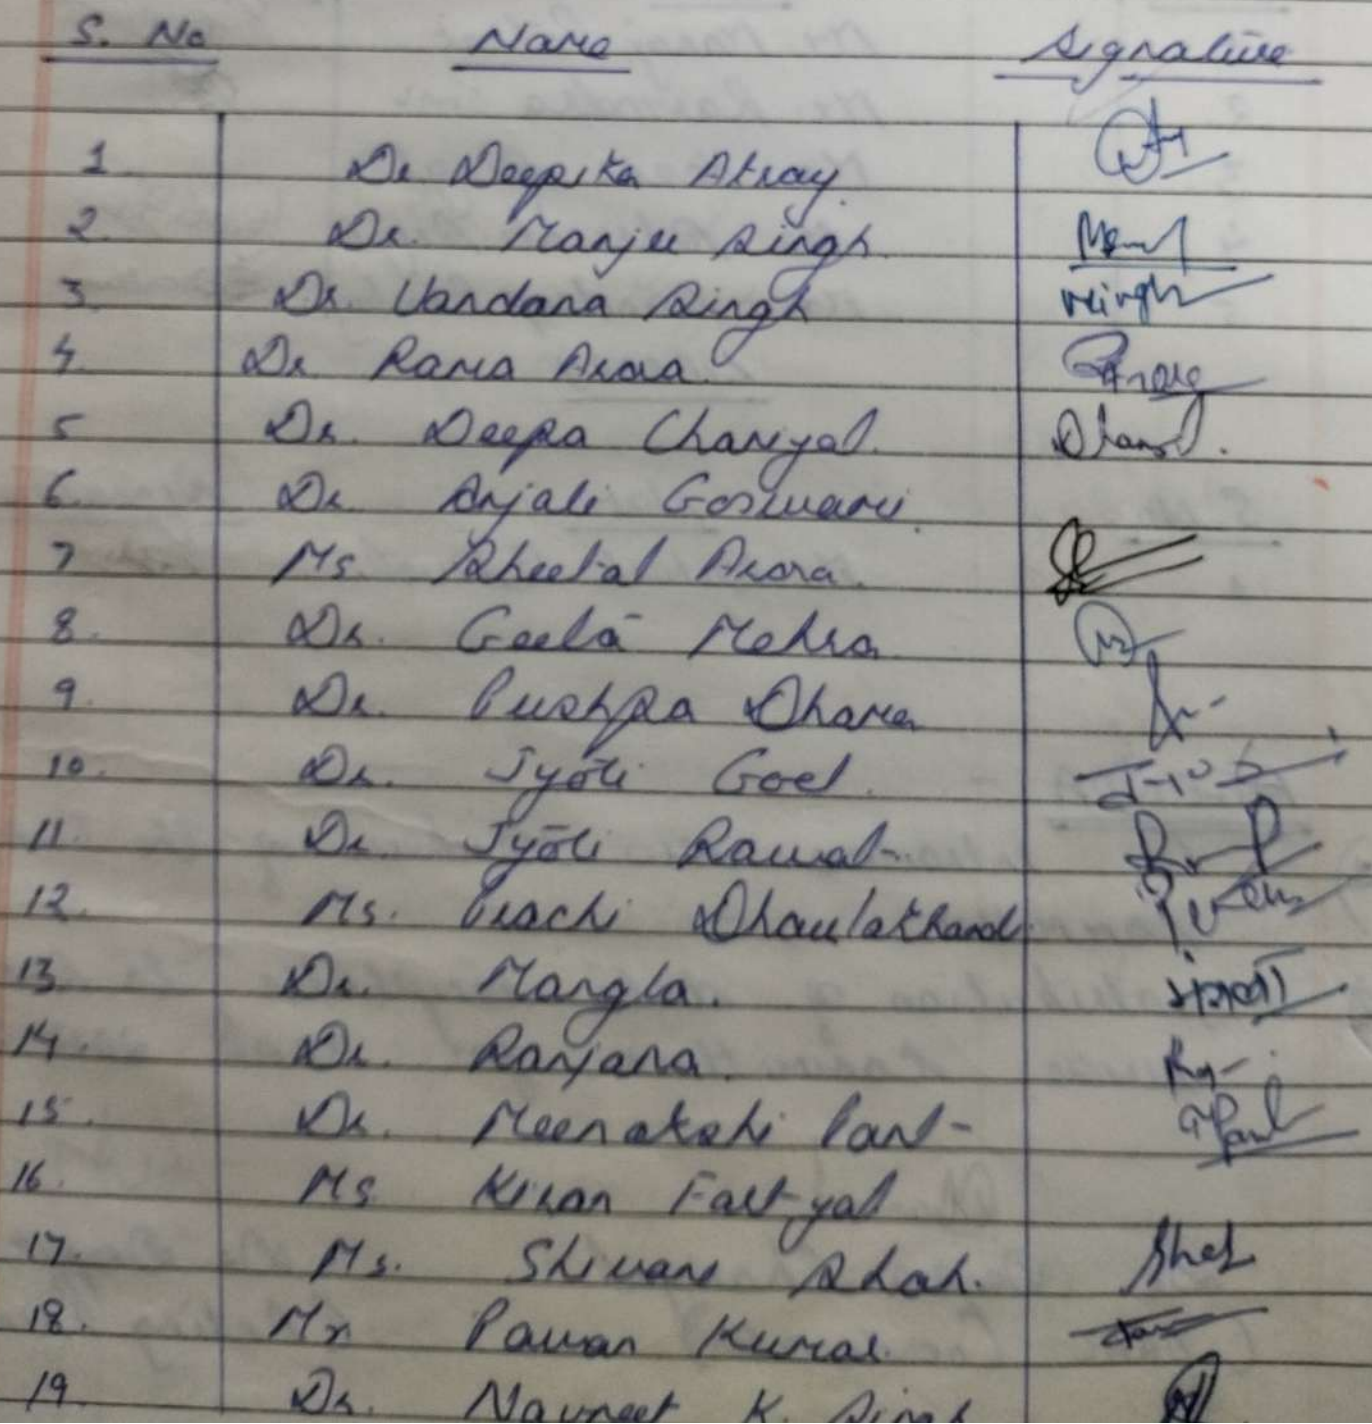 S. No Name Signature
1 Dr Deepika Atray
2. Dr. Manju Singh
3. Dr. Vandana Singh Vsingh
4. Dr Rama Arora RArora
5 Dr. Deepa Chanyal
6. Dr Anjali Goswami
7 Ms Sheetal Arora
8. Dr. Geeta Mehra
9. Dr. Pushpa Dhama
10. Dr. Jyoti Goel.
11. Dr. Jyoti Rawat
12. Ms. Prachi Dhaulakhandi
13 Dr. Mangla. मंगला
14. Dr. Ranjana.
15. Dr. Meenakshi Pant MPant
16. Ms Kiran Fartyal
17. Ms. Shivani Shah. Shah
18. Mr Pawan Kumar.
19 Dr. Navneet K. Singh